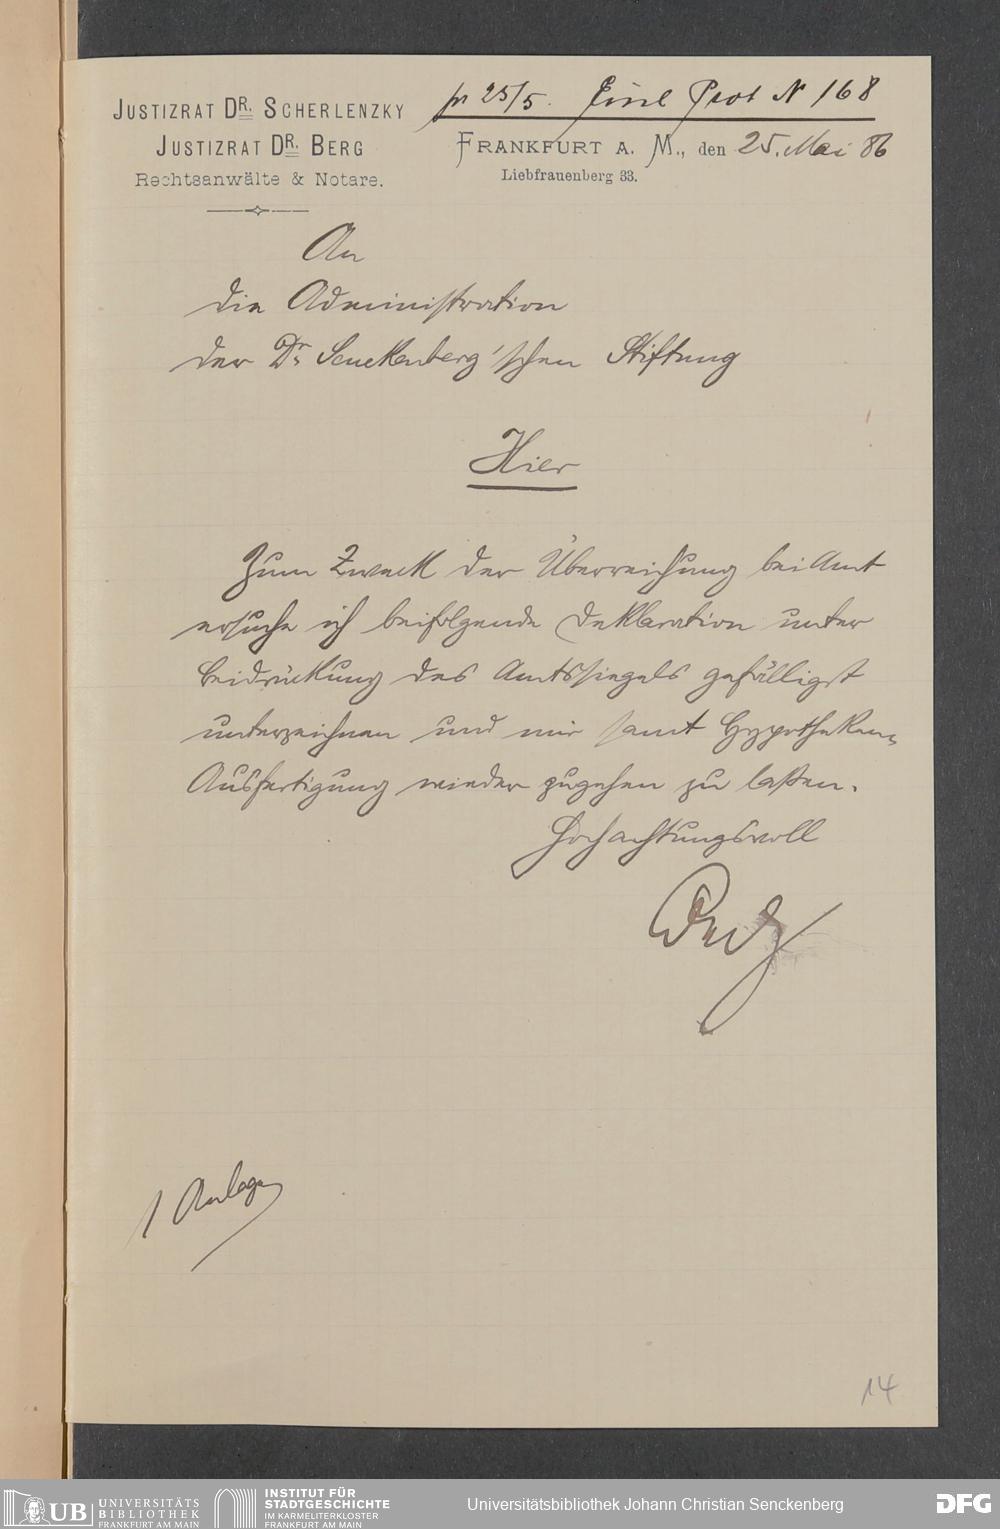 JUSTIZRAT DR. SCHERLENZKY
JUSTIZRAT DR. BERG
Rechtsanwälte & Notare.
pr 25/5. Einl Prot N 168
FRANKFURT A. M., den 25. Mai 86
Liebfrauenberg 33.
An
die Administration
der Dr Senckenberg'schen Stiftung
Hier
Zum Zweck der Überreichung bei Amt
ersuche ich beifolgende Deklaration unter
Beidrückung des Amtssiegels gefälligst
unterzeichnen und mir samt Hypotheken-
Ausfertigung wieder zugehen zu laßen.
Hochachtungsvoll
1 Anlage
14
UB UNIVERSITÄTS
BIBLIOTHEK
FRANKFURT AM MAIN
INSTITUT FÜR
STADTGESCHICHTE
IM KARMELITERKLOSTER
FRANKFURT AM MAIN
Universitätsbibliothek Johann Christian Senckenberg
DFG